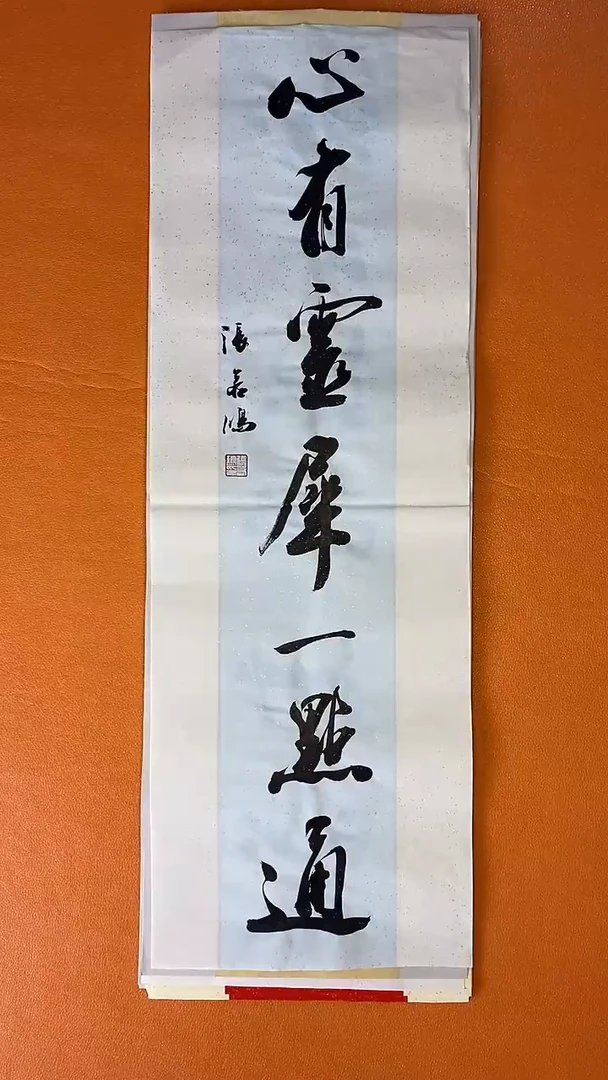 心有靈犀一點通
張若鴻